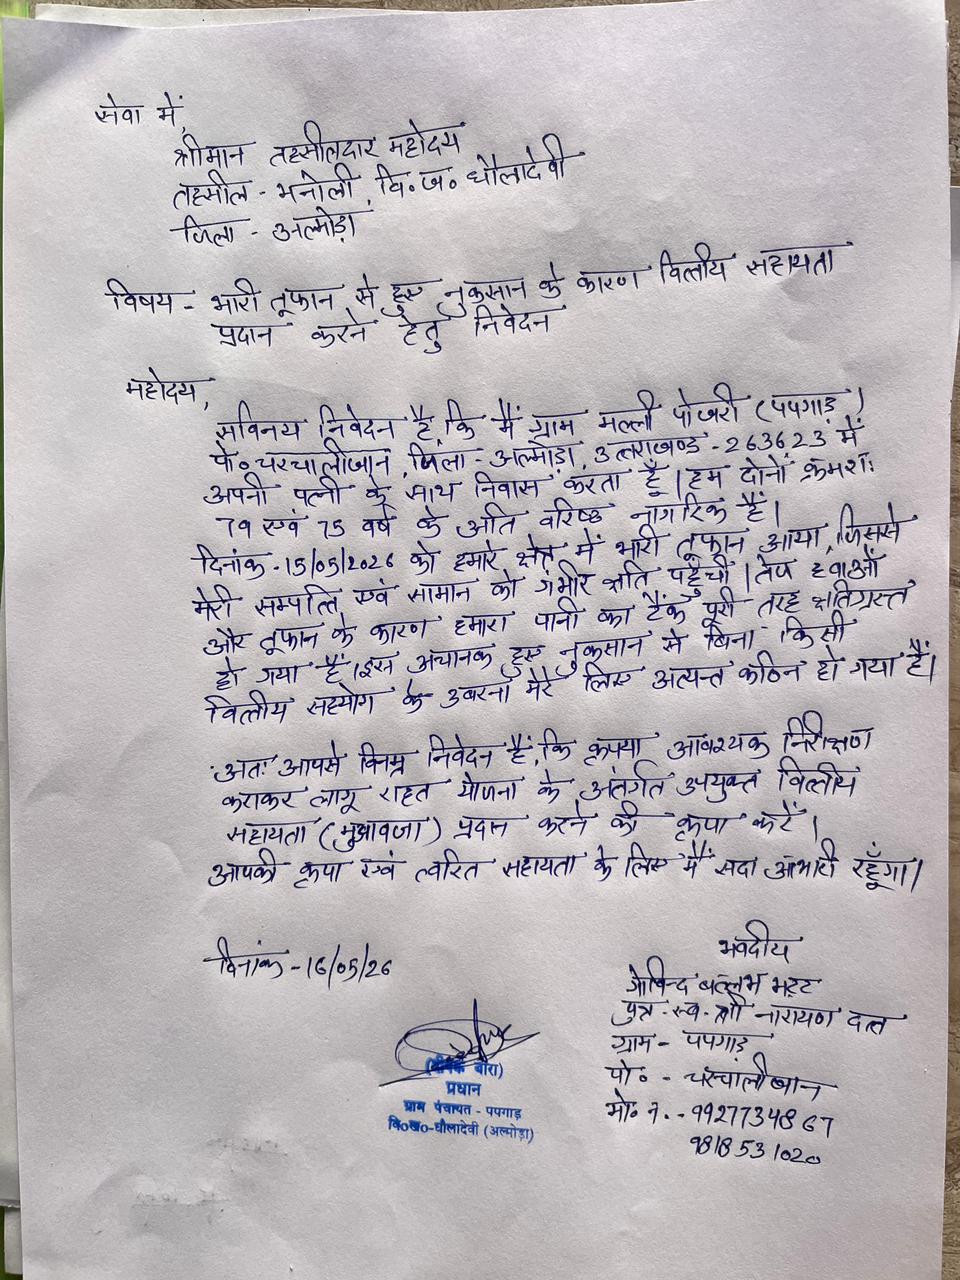 सेवा में,
श्रीमान तहसीलदार महोदय
तहसील - भनोली, वि०ख० धौलादेवी
जिला - अल्मोड़ा
विषय - भारी तूफान से हुए नुकसान के कारण वित्तीय सहायता
प्रदान करने हेतु निवेदन
महोदय,
सविनय निवेदन है, कि मैं ग्राम मल्ली पोखरी (पपगाड़)
पो० चरचालीखान, जिला - अल्मोड़ा, उत्तराखण्ड - 263623 में
अपनी पत्नी के साथ निवास करता हूँ। हम दोनों क्रमशः
79 एवं 75 वर्ष के अति वरिष्ठ नागरिक हैं।
दिनांक - 15/05/2026 को हमारे क्षेत्र में भारी तूफान आया, जिससे
मेरी सम्पत्ति एवं सामान को गंभीर क्षति पहुँची। तेज हवाओं
और तूफान के कारण हमारा पानी का टैंक पूरी तरह क्षतिग्रस्त
हो गया है। इस अचानक हुए नुकसान से बिना किसी
वित्तीय सहयोग के उबरना मेरे लिए अत्यन्त कठिन हो गया है।
अतः आपसे विनम्र निवेदन है, कि कृपया आवश्यक निरीक्षण
कराकर लागू राहत योजना के अंतर्गत उपयुक्त वित्तीय
सहायता (मुआवजा) प्रदान करने की कृपा करें।
आपकी कृपा एवं त्वरित सहायता के लिए मैं सदा आभारी रहूँगा।
दिनांक - 16/05/26
भवदीय
गोविन्द बल्लभ भट्ट
पुत्र - स्व. श्री नारायण दत्त
ग्राम - पपगाड़
पो० - चरचालीखान
मो० न. - 9927734867
9818531020
बोरा)
प्रधान
ग्राम पंचायत - पपगाड़
वि०ख०-धौलादेवी (अल्मोड़ा)